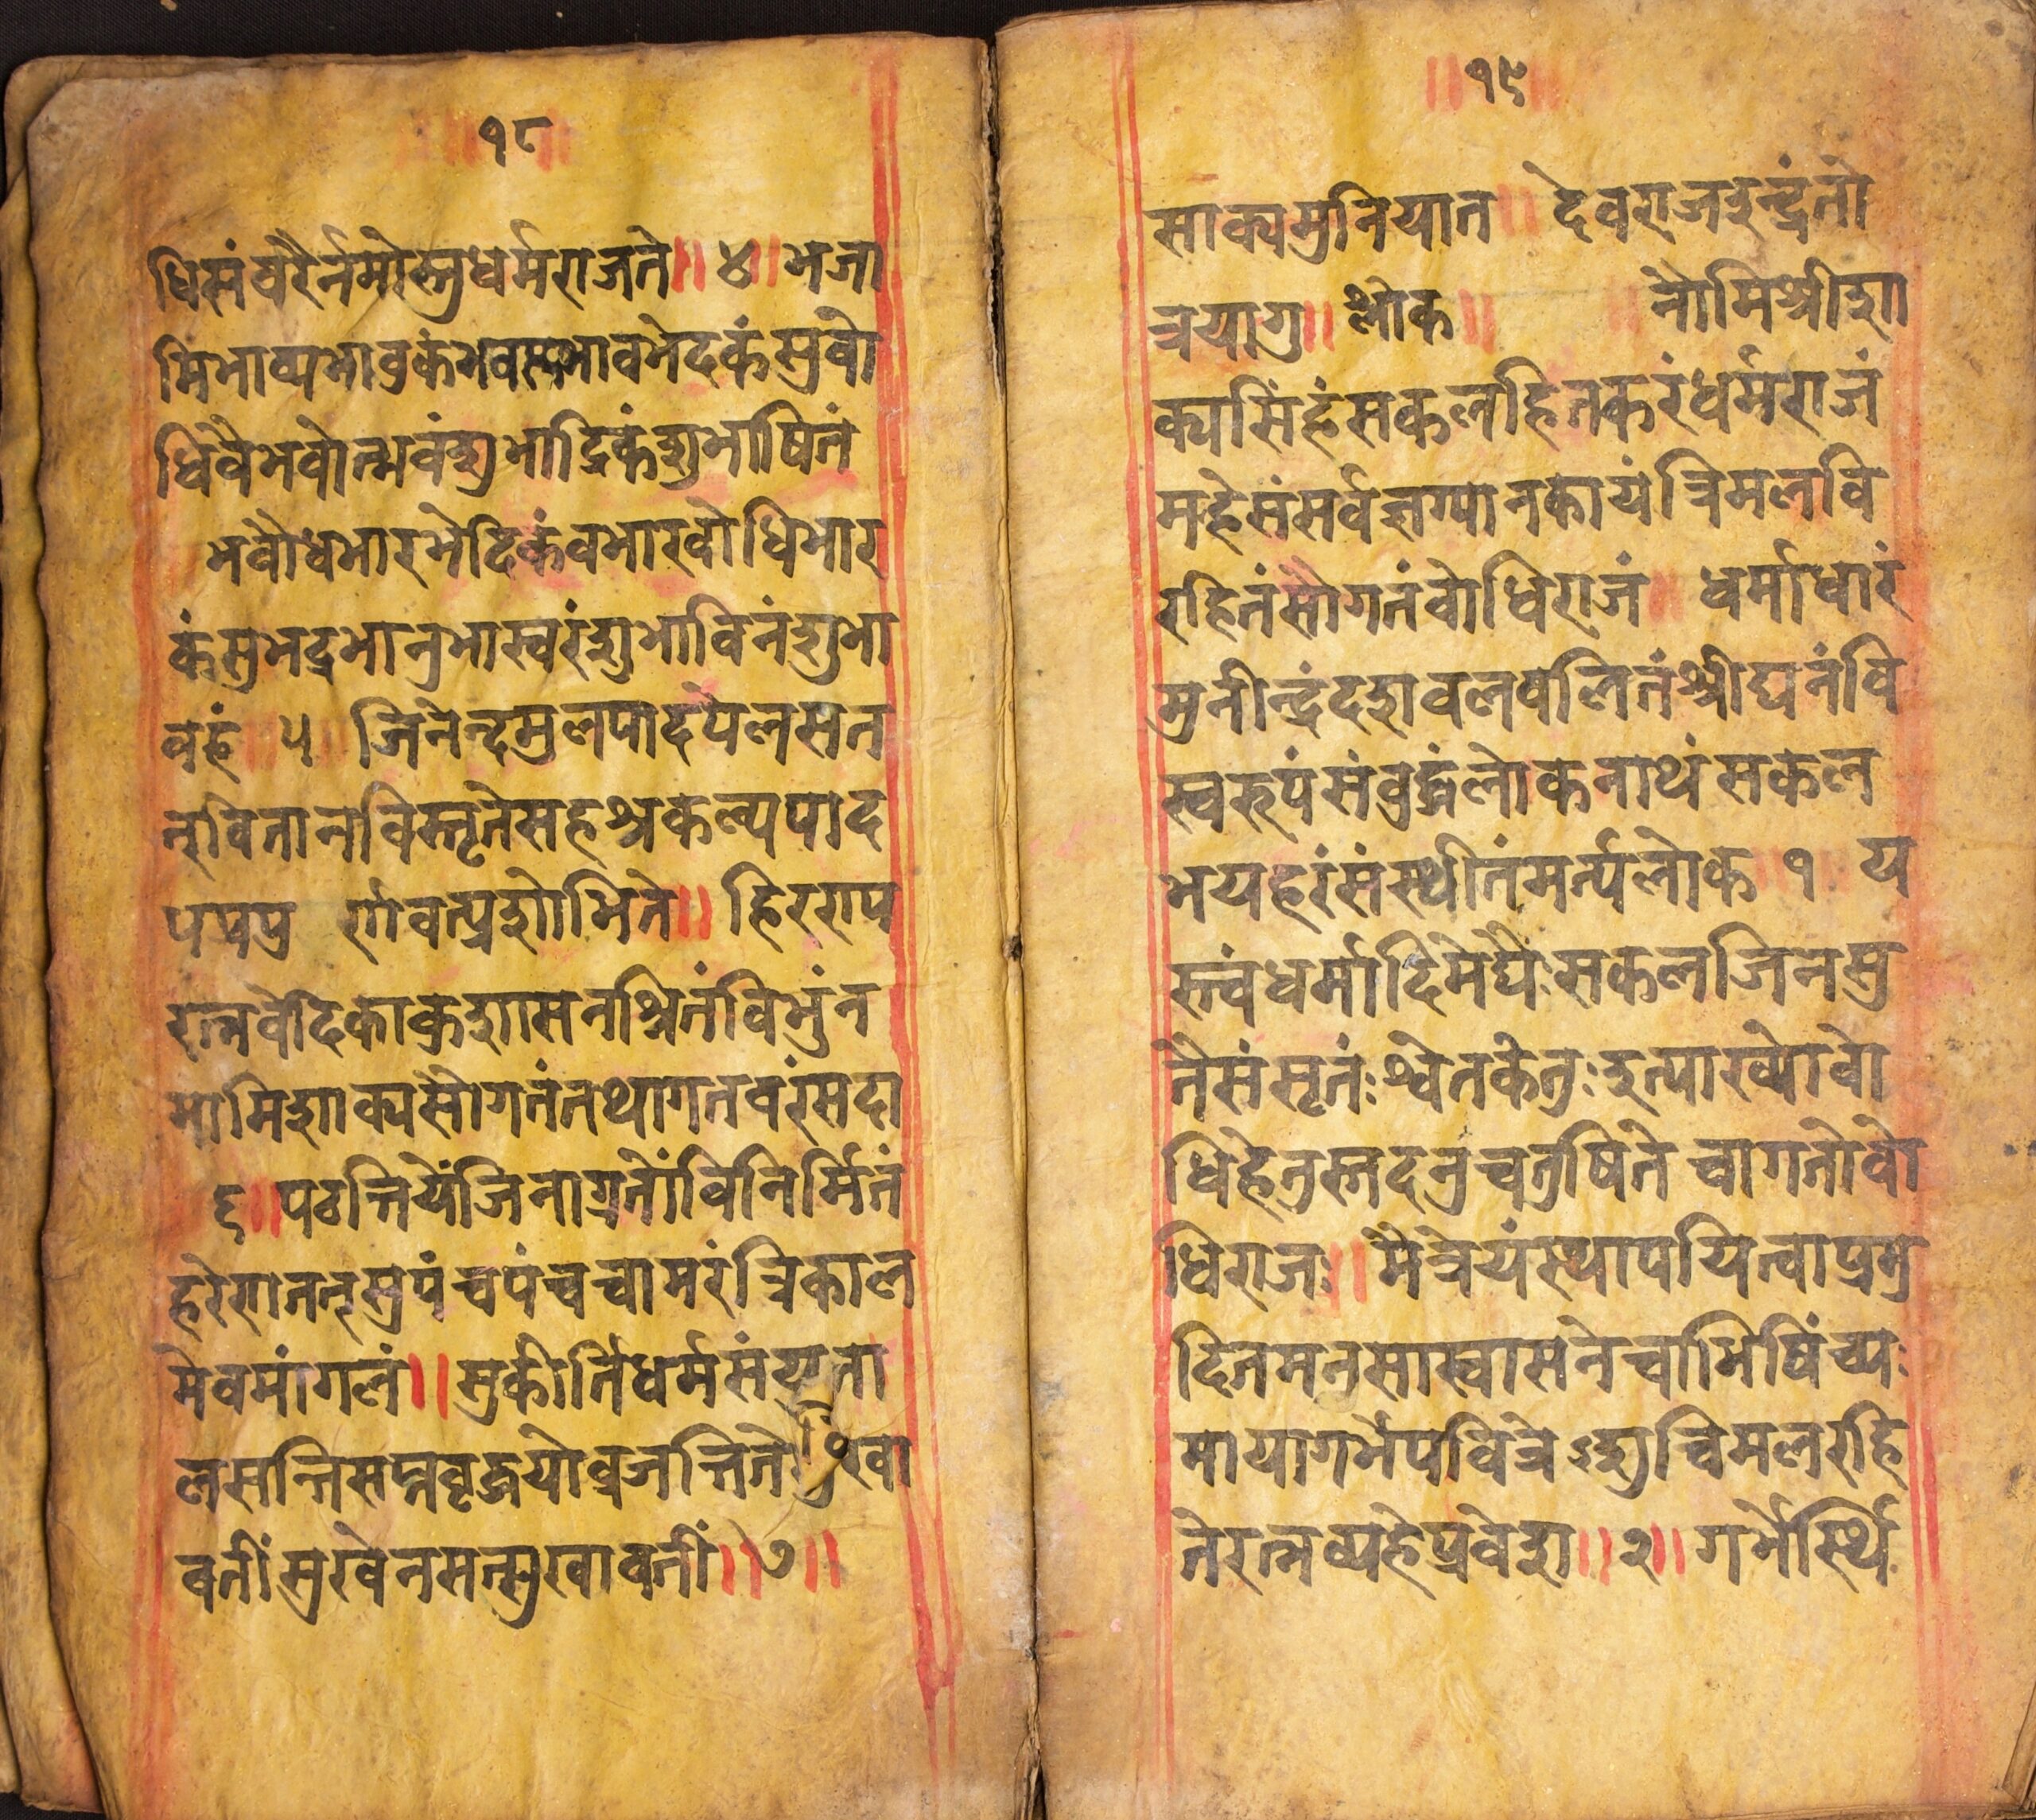 १८
धिसंवरैर्नमोस्तुधर्मराजते॥ ४॥ भजा
मिभाव्यभावुकंभवस्वभावभेदकंसुवो
धिवैभवोत्भवंशुभाद्रिकंशुभाषितं
भवौघभारभेदिकंवभारवोधिभार
कंसुभद्रभानुभास्वरंशुभाविनंशुभा
वहं ॥ ५ ॥ जिनेन्द्रमुलपादपेलसत
न्वितानविस्तृतेसहश्रकल्पपाद
पप्रप्र र्णवत्प्रशोभिते॥ हिरराप
रात्नवेदिकाक्रशासनश्रितंविभुंन
मामिशाक्यसौगतंतथागतवरंसदा
६॥पठन्तियेंजिनाग्रतोंविनिर्मितं
हरेरानत्सुपंचपंचचामरंत्रिकाल
मेवमांगलं॥ सुकीर्तिधर्मसंयुता
लसन्तिसप्नवृद्धयोव्रजन्तिते सुखा
वतीं सुखेनसत्सुखावतीं॥ ७॥
॥१९॥
साक्यमुनियात ॥ देवराजइन्द्रंतो
त्रयागु॥ श्लोक॥ ॥ नौमिश्रीशा
क्यसिंहंसकलहितकरंधर्मराजं
महेसंसर्वज्ञग्यानकायंत्रिमलवि
रहितंसौगतंवोधिराजं ॥ धर्माधारं
मुनीन्द्रंदशवलवलितंश्रीघनंवि
स्वरुपंसंवुद्धंलोकनाथंसकल
भयहरंसंस्थीतंमर्त्यलोक ॥ १ ॥ य
स्त्वंधर्मादिमेघैःसकलजिनसु
तैसंसृतंःश्वेतकेतुःइत्याख्योवो
धिहेतुस्तदनुचतुषिते चागतोवो
धिराजः॥ मैत्रेयंस्थापयित्वाप्रमु
दितमनसास्वासनेचाभिषिंच्यः
मायागर्भेपवित्रेऽशुचिमलरहि
तेरत्नव्यहेप्रवेश॥ २॥ गर्भेर्स्थि